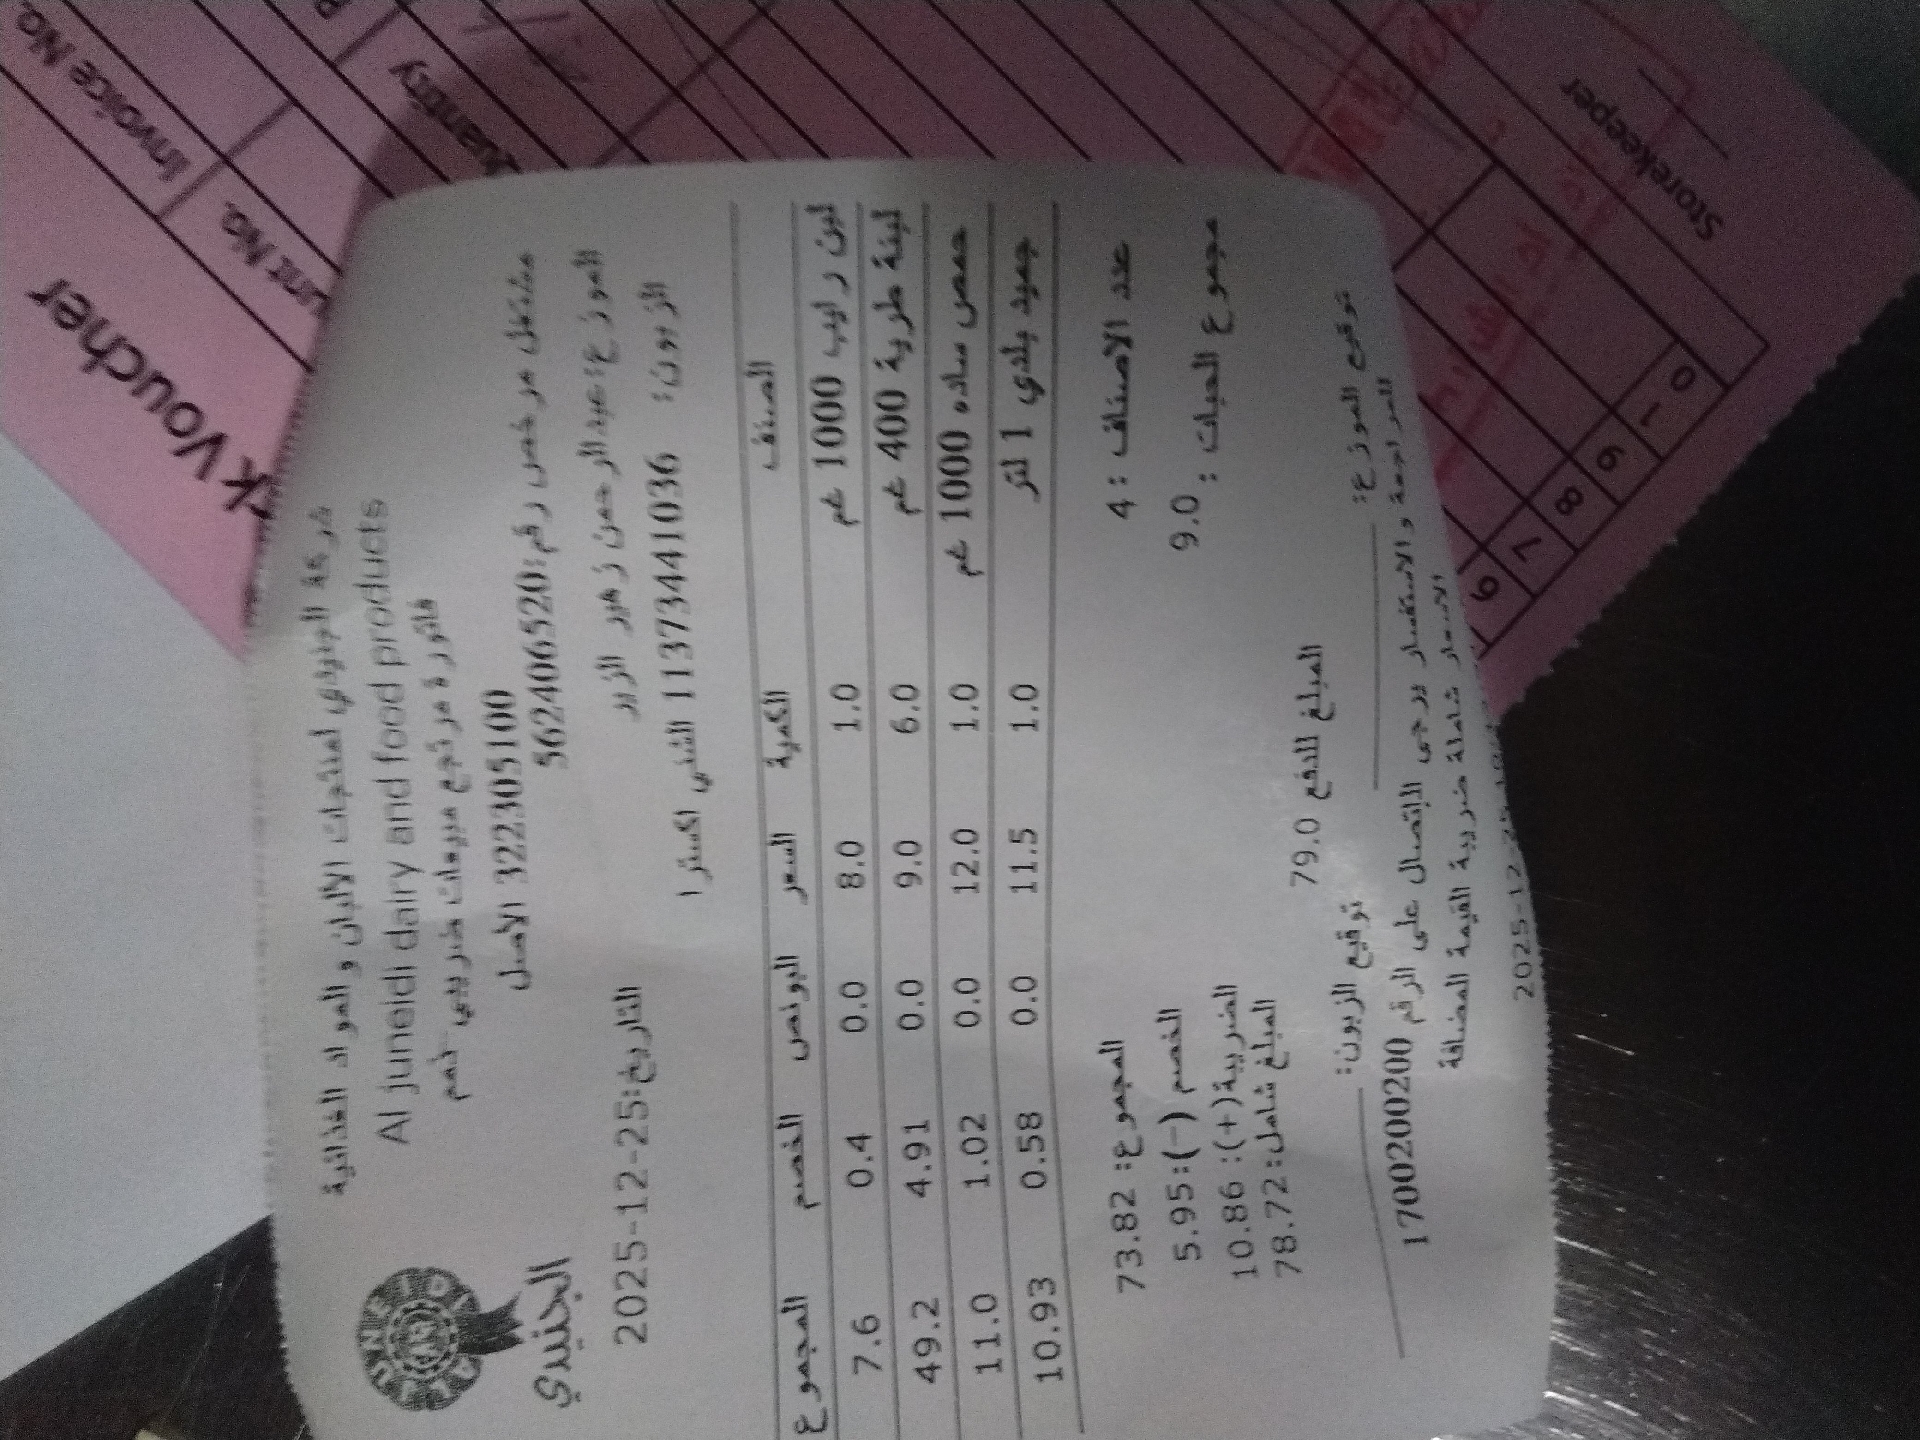 شركة الجنيدي لمنتجات الألبان والمواد الغذائية
Al juneidi dairy and food products
فاتورة مرتجع مبيعات ضريبي خصم
3223051100 الأصل
مشتغل مرخص رقم:562406520
الجنيدي
الموزع:عبدالرحمن زهير الزير
التاريخ:2025-12-25
الزبون: 113734441036 الشني اكسترا
الصنف الكمية السعر البونص الخصم المجموع
لبن رايب 1000 غم 1.0 8.0 0.0 0.4 7.6
لبنة طرية 400 غم 6.0 9.0 0.0 4.91 49.2
حمص ساده 1000 غم 1.0 12.0 0.0 1.02 11.0
جميد بلدي 1 لتر 1.0 11.5 0.0 0.58 10.93
عدد الاصناف : 4
المجموع: 73.82
مجموع الحبات : 9.0
الخصم (-): 5.95
الضريبة(+): 10.86
المبلغ شامل: 78.72
المبلغ للدفع 79.0
توقيع الموزع:
توقيع الزبون:
للمراجعة والاستفسار يرجى الاتصال على الرقم 1700200200
الاسعار شاملة ضريبة القيمة المضافة
Voucher
Invoice No.
Quantity
Storekeeper
6
7
8
9
1
0